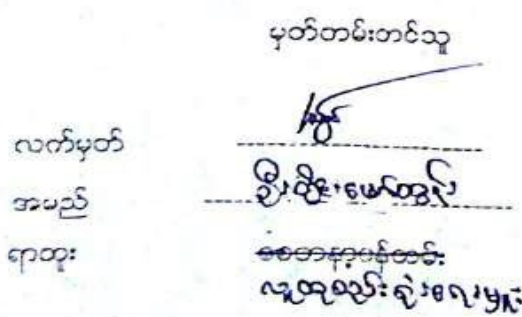 မှတ်တမ်းတင်သူ
လက်မှတ်
အမည် ဦးဝိုင်းမော်ထွန်း
ရာထူး စေတနာ့ဝန်ထမ်း
လူထုစည်းရုံးရေးမှူး